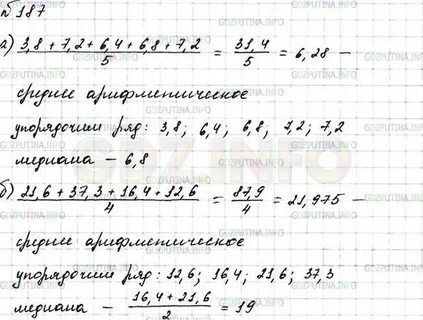 №187
а) (3,8 + 7,2 + 6,4 + 6,8 + 7,2)/5 = 31,4/5 = 6,28 —
среднее арифметическое
упорядочим ряд: 3,8; 6,4; 6,8; 7,2; 7,2
медиана — 6,8
б) (21,6 + 37,3 + 16,4 + 12,6)/4 = 87,9/4 = 21,975 —
среднее арифметическое
упорядочим ряд: 12,6; 16,4; 21,6; 37,3
медиана — (16,4 + 21,6)/2 = 19
GDZ.INFO
GDZPUTINA.INFO